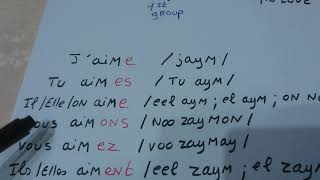 1st
group
J'aime /jaym/
Tu aimes /Tu aym/
Il/Elle/on aime /eel aym; el aym; on
aimons /Noo zaymon/
vous aimez /voo zaymay/
Ils/Elles aiment /eel zaym; el zaym